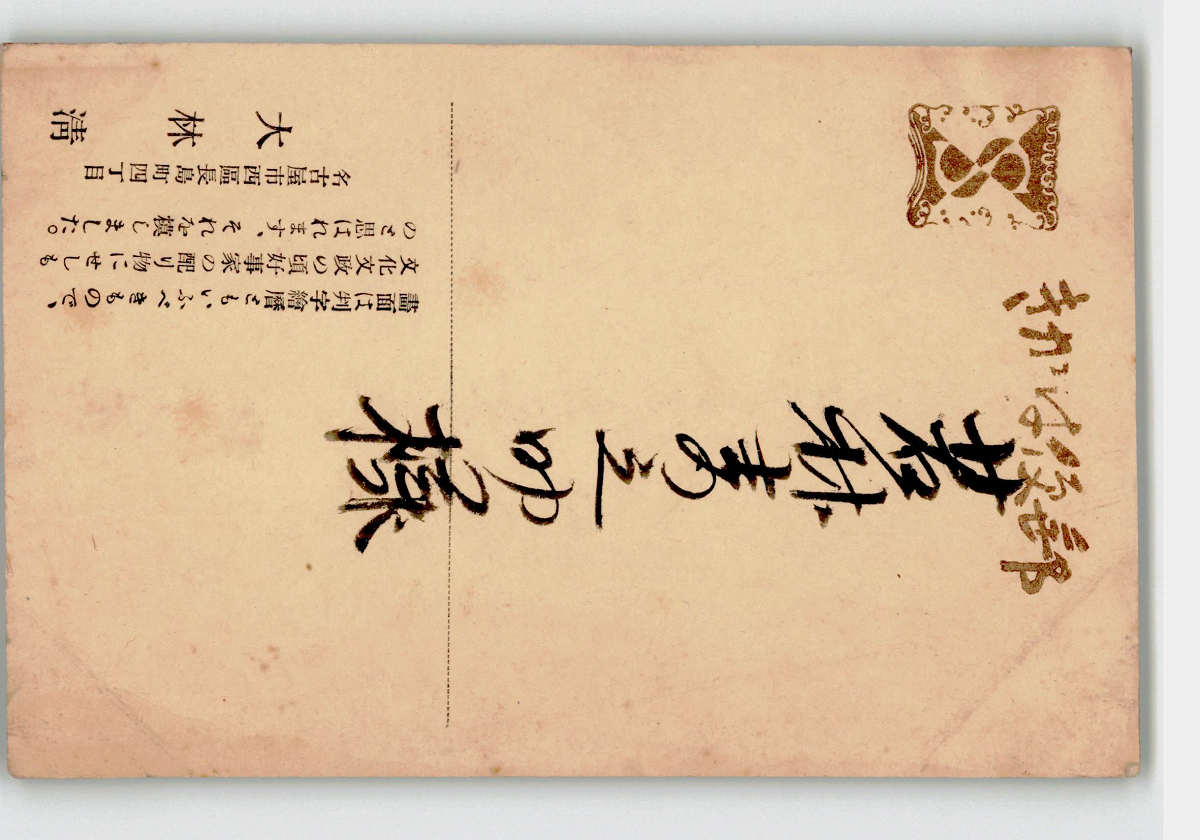 郵便はがき
若林 郎様
畫面は判字繪暦ともいふべきもので、
文化文政の頃好事家の配り物にせしも
のと思はれます、それを模しました。
名古屋市西區長島町四丁目
大林清